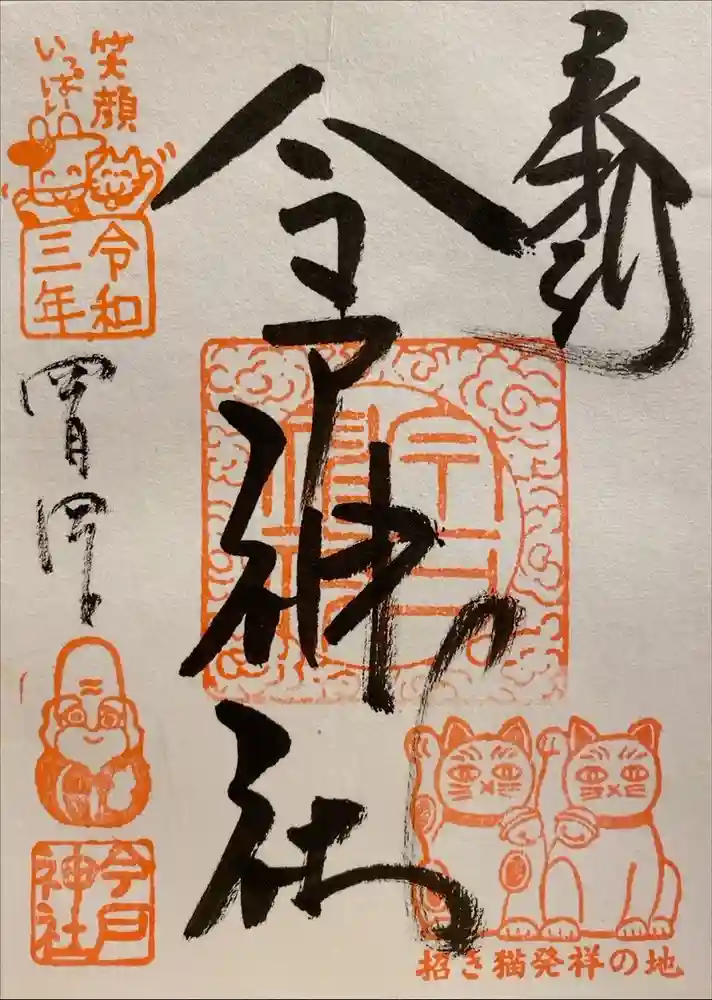 奉拝
今戸神社
笑顔
いっぱい
令和
三年
四月
今戸
神社
招き猫発祥の地